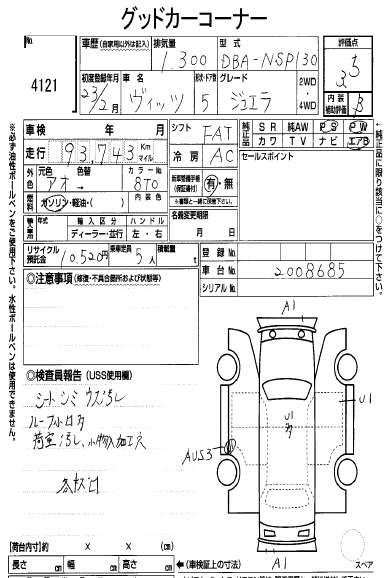 グッドカーコーナー
No.
4121
車歴(自家用以外は記入)
排気量
1,300
型式
DBA-NSP130
評価点
3.5
内装
補助評価
B
初度登録年月
23/2月
車名
ヴィッツ
枚数・ドア形状
5
グレード
ジュエラ
2WD
・
4WD
車検 年 月
走行 93,743 Km マイル
シフト FAT
冷房 AC
純正品
SR 純AW PS PW
カワ TV ナビ エアB
セールスポイント
外色
元色 色替
アオ→
カラーNo.
8T0
内装色
燃料
ガソリン・軽油・( )
新車整備手帳
(保証書付)
有・無
※書類と一緒に後渡し下さい。
名義変更期限
月 日
輸入車用
年式
輸入区分
ディーラー・並行
ハンドル
左・右
リサイクル
預託金
10,520円
乗車定員
5人
積載量
t
登録No.
車台No. 2008685
シリアルNo.
◎注意事項(修復・不具合箇所および状態等)
◎検査員報告(USS使用欄)
シートシミ ウス汚し
ルーフ小口多
荷室汚し、小物入加工穴
A1
U1
多
U1
AUS3
A1
スペア
【荷台内寸】約 X X
長さ cm 幅 cm 高さ cm
←(車検証上の寸法)
※必ず油性ボールペンをご使用下さい。水性ボールペンは使用できません。
←純正品に限り該当に○をつけて下さい。